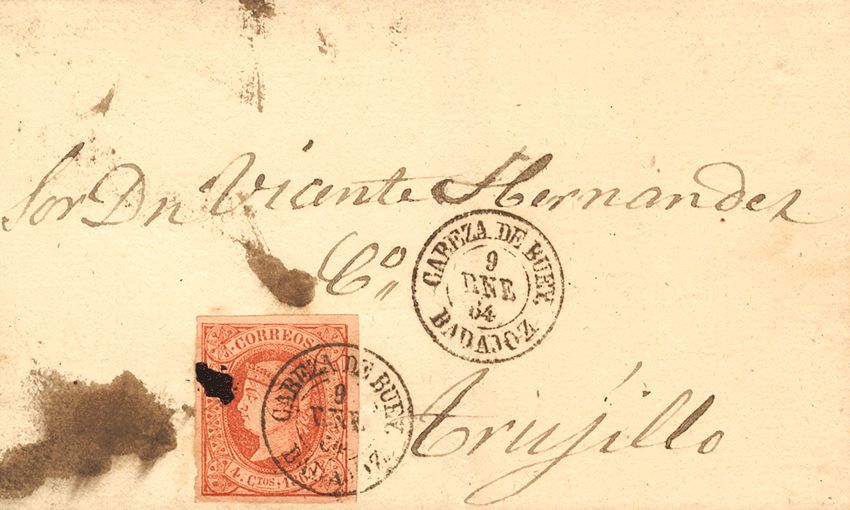 Sor Dn Vicente Hernandez
Co
CABEZA DE BUEY
9
ENE
64
BADAJOZ
CORREOS
4 CTOS.
CABEZA DE BUEY
9
ENE
64
BADAJOZ
trujillo